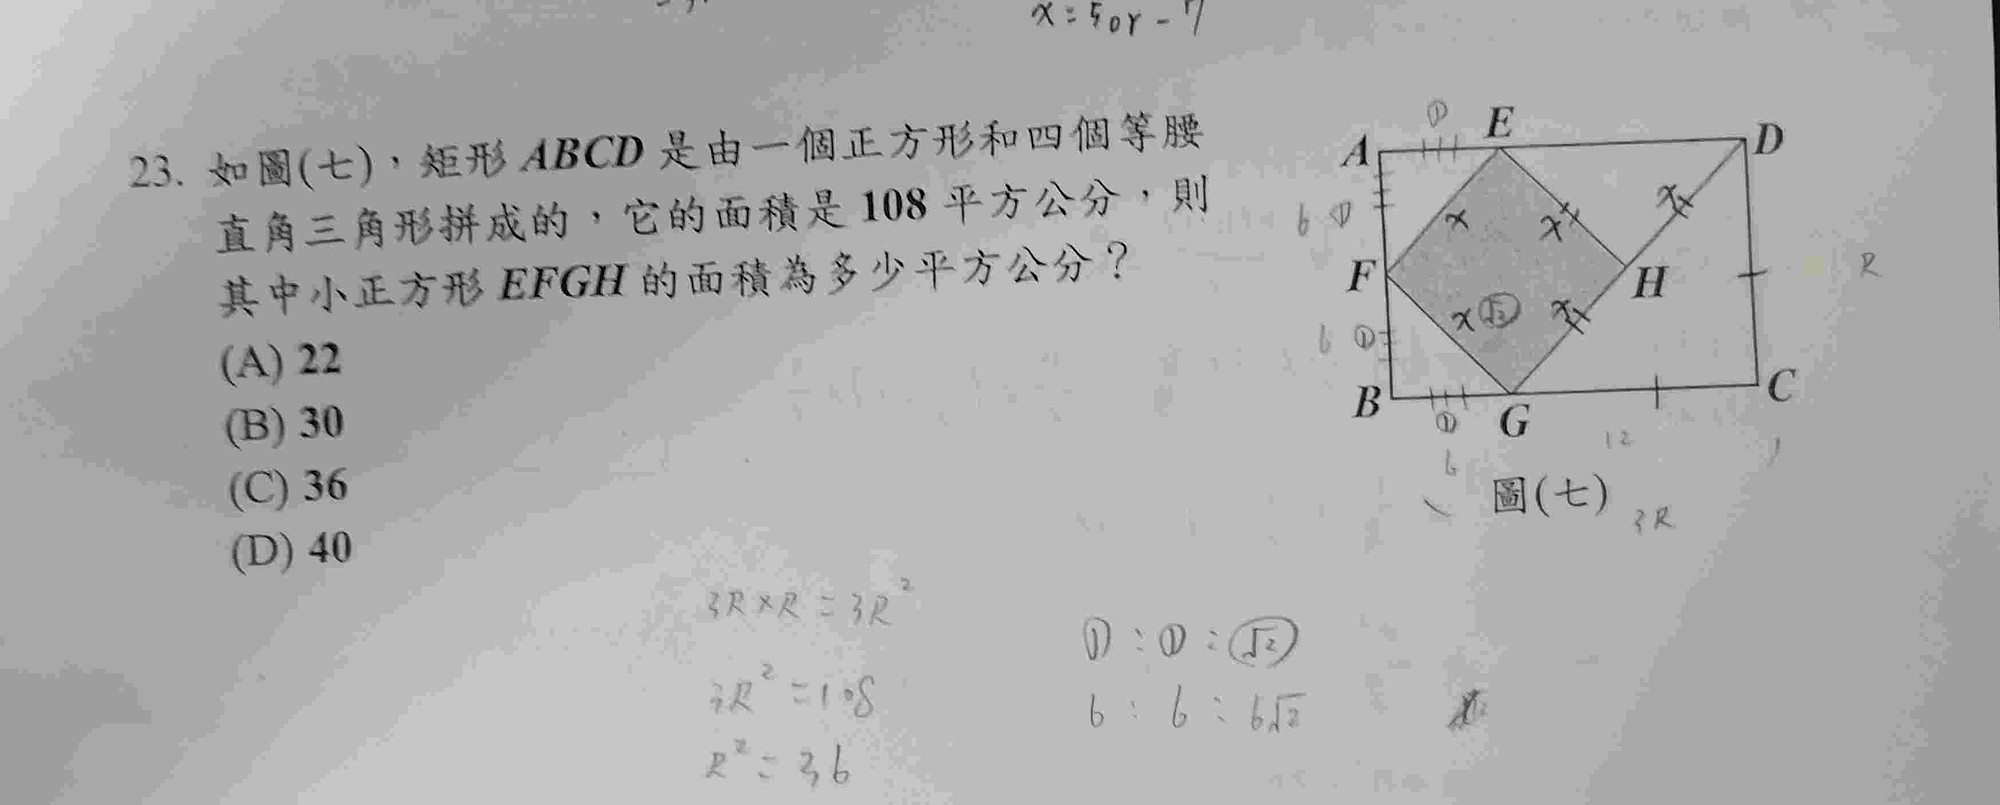 x = 5 or - 7
23. 如圖(七)，矩形 ABCD 是由一個正方形和四個等腰
直角三角形拼成的，它的面積是 108 平方公分，則
其中小正方形 EFGH 的面積為多少平方公分？
(A) 22
(B) 30
(C) 36
(D) 40
① E
A D
x x x
6 ①
F H R
x √2 x
6 ①
B G C
① 12
6
圖(七) 3R
3R × R = 3R²
① : ① : √2
3R² = 108
6 : 6 : 6√2
R² = 36